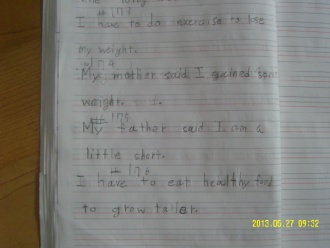 # 173
I have to do exercise to lose
my weight.
# 174
My mother said I gained some
weight.
# 175
My father said I am a
little short.
# 176
I have to eat healthy food
to grow taller.
2013.05.27 09:32